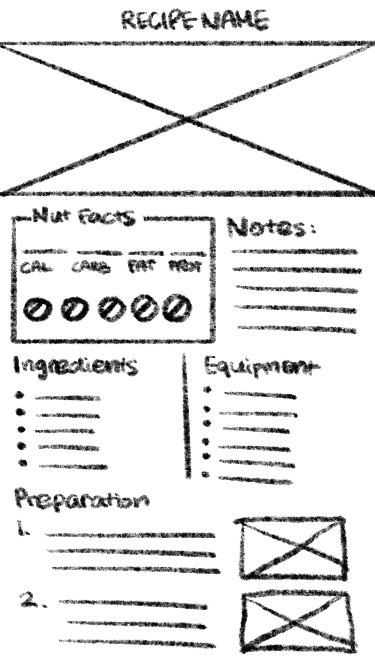 RECIPE NAME
Nut Facts
CAL CARB FAT PROT
Notes:
Ingredients
Equipment
Preparation
1.
2.